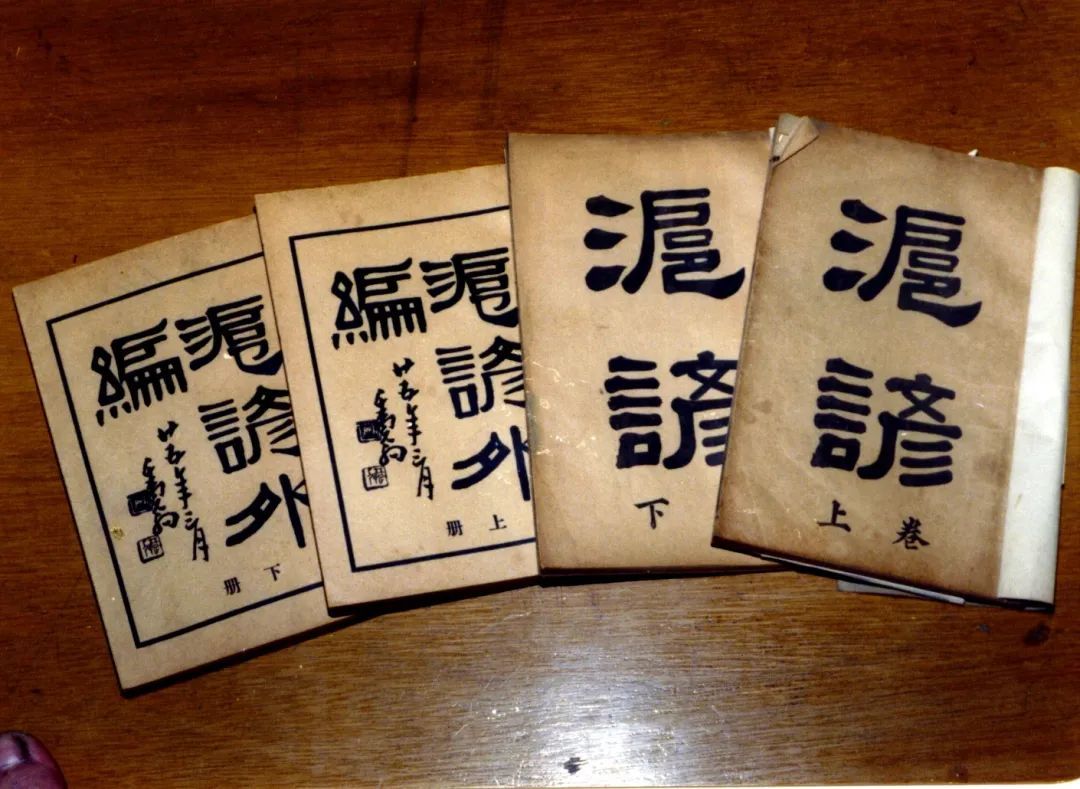 滬諺
卷上
滬諺
下
滬諺外
編
廿五年三月
上册
滬諺外
編
廿五年三月
下册